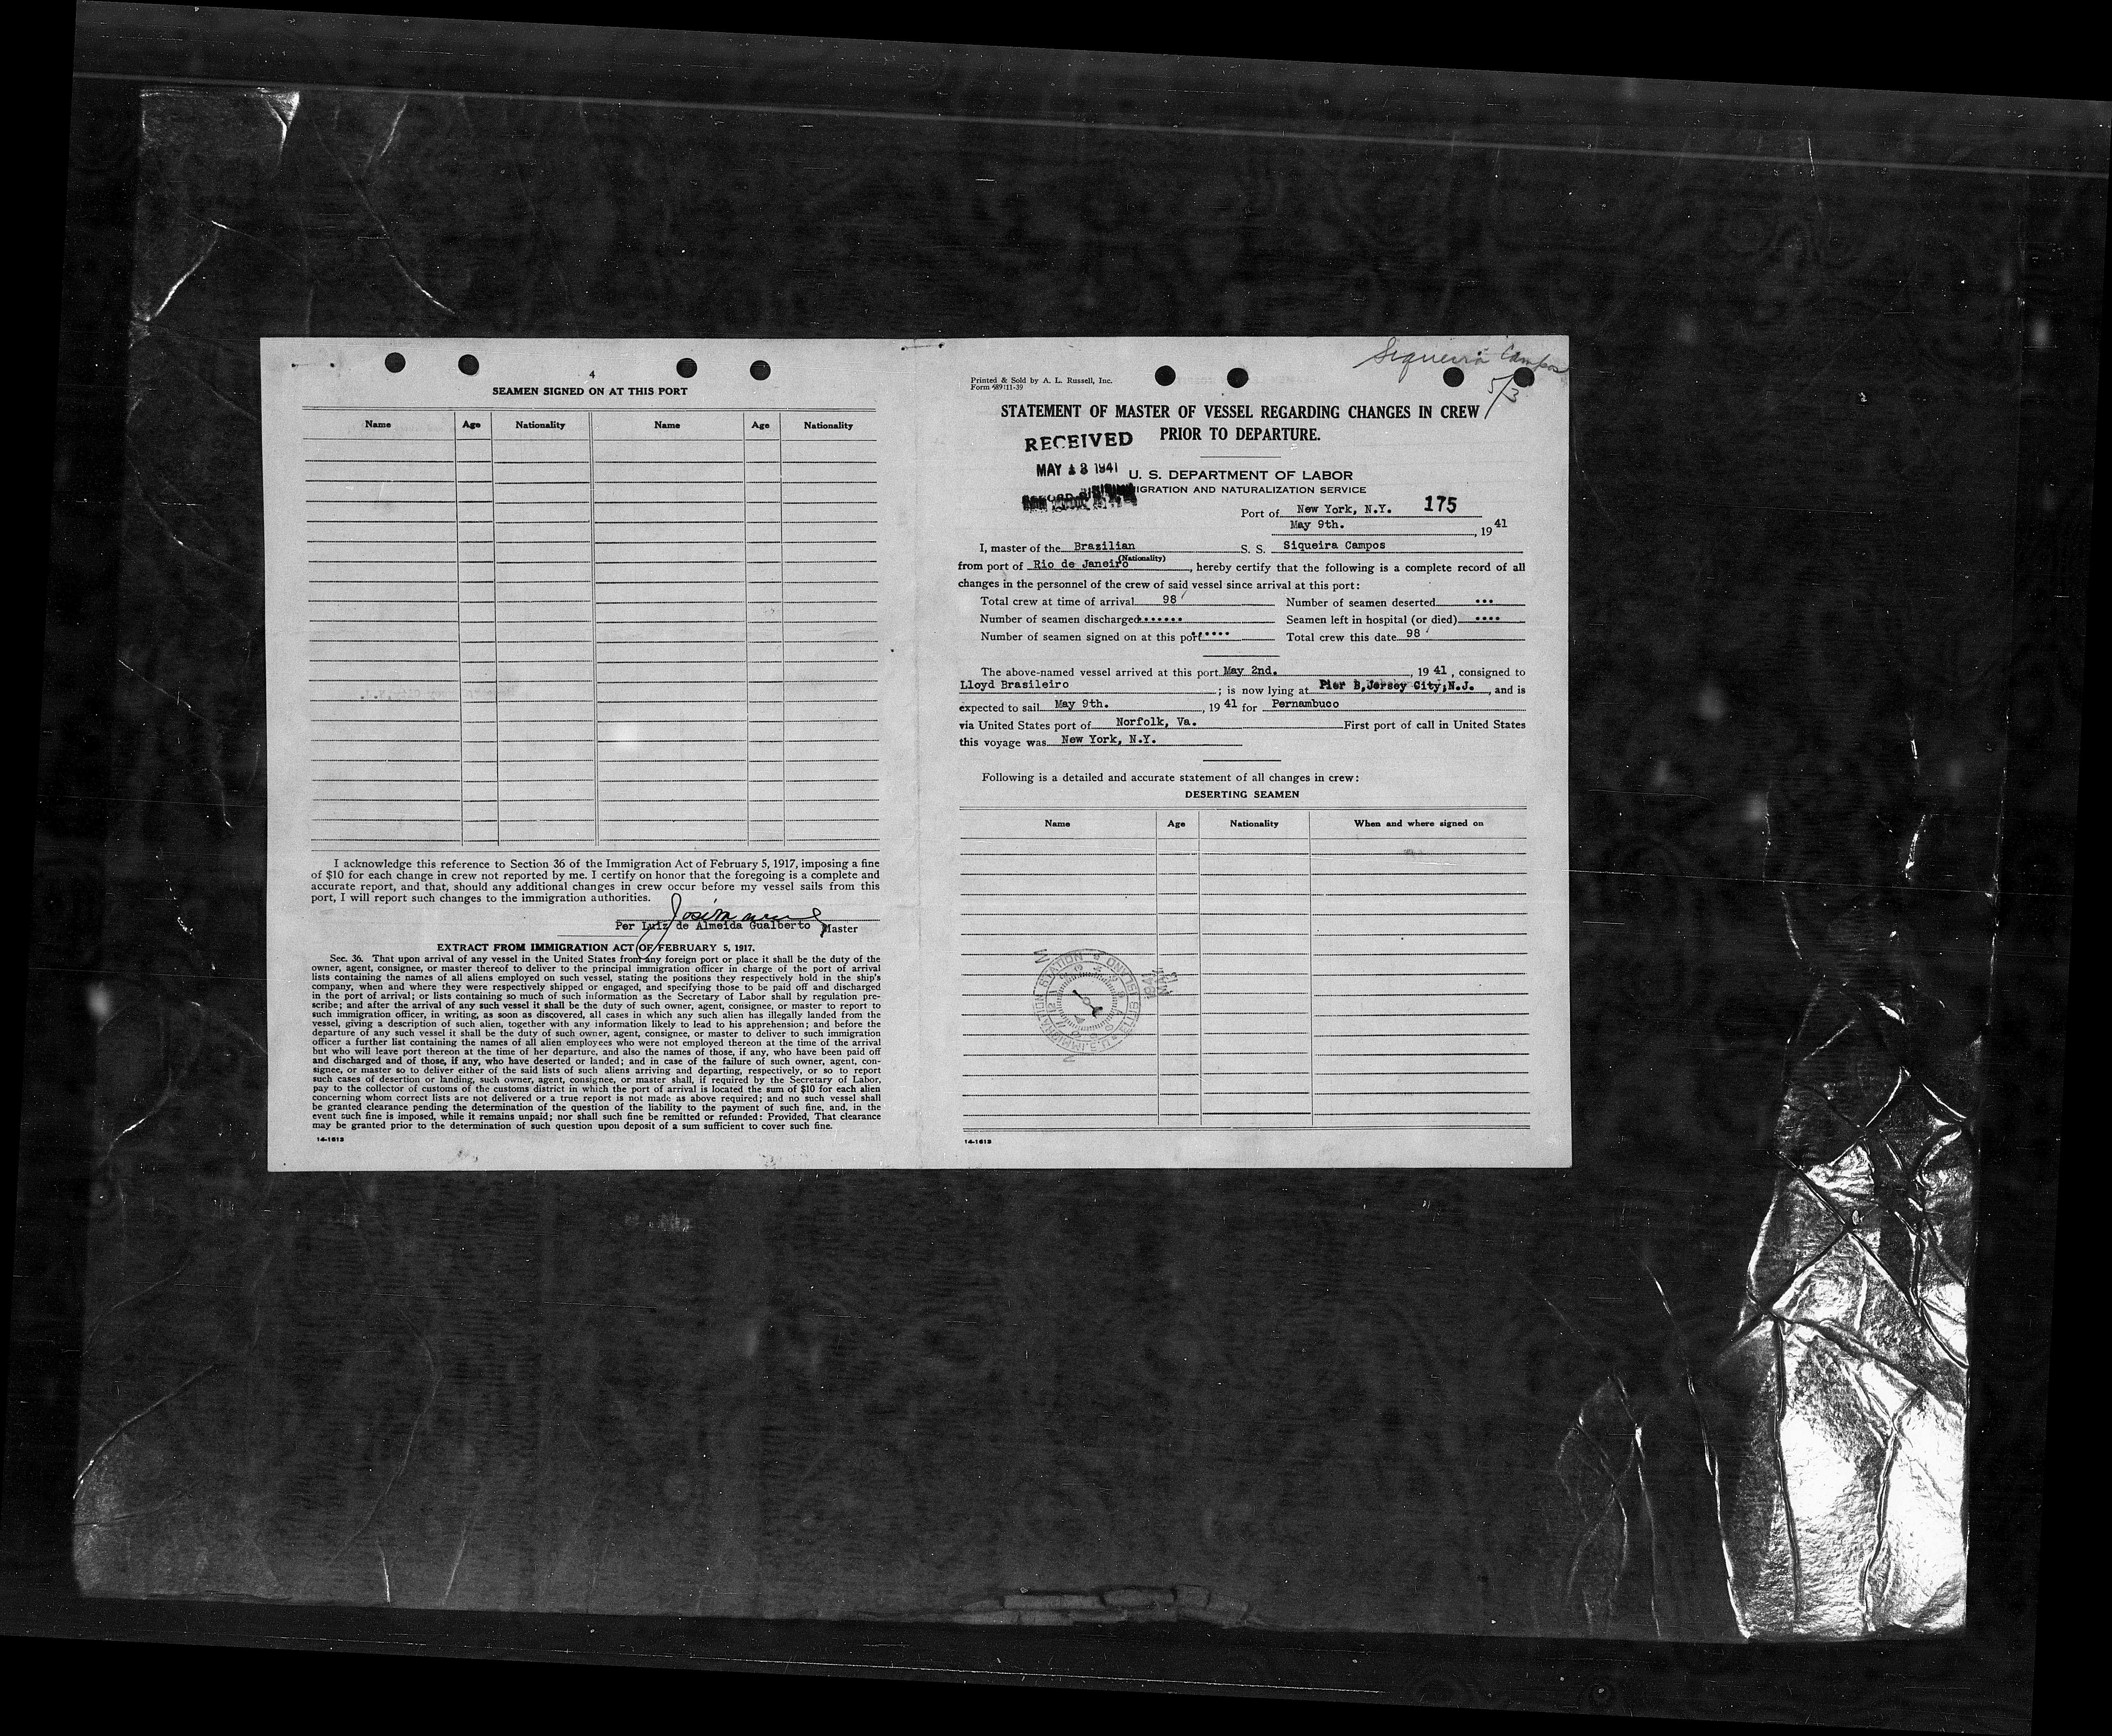 4
SEAMEN SIGNED ON AT THIS PORT
Name Age Nationality Name Age Nationality
I acknowledge this reference to Section 36 of the Immigration Act of February 5, 1917, imposing a fine
of $10 for each change in crew not reported by me. I certify on honor that the foregoing is a complete and
accurate report, and that, should any additional changes in crew occur before my vessel sails from this
port, I will report such changes to the immigration authorities.
Per Luiz de Almeida Gualberto Master
EXTRACT FROM IMMIGRATION ACT OF FEBRUARY 5, 1917.
Sec. 36. That upon arrival of any vessel in the United States from any foreign port or place it shall be the duty of the
owner, agent, consignee, or master thereof to deliver to the principal immigration officer in charge of the port of arrival
lists containing the names of all aliens employed on such vessel, stating the positions they respectively hold in the ship's
company, when and where they were respectively shipped or engaged, and specifying those to be paid off and discharged
in the port of arrival; or lists containing so much of such information as the Secretary of Labor shall by regulation pre-
scribe; and after the arrival of any such vessel it shall be the duty of such owner, agent, consignee, or master to report to
such immigration officer, in writing, as soon as discovered, all cases in which any such alien has illegally landed from the
vessel, giving a description of such alien, together with any information likely to lead to his apprehension; and before the
departure of any such vessel it shall be the duty of such owner, agent, consignee, or master to deliver to such immigration
officer a further list containing the names of all alien employees who were not employed thereon at the time of the arrival
but who will leave port thereon at the time of her departure, and also the names of those, if any, who have been paid off
and discharged and of those, if any, who have deserted or landed; and in case of the failure of such owner, agent, con-
signee, or master so to deliver either of the said lists of such aliens arriving and departing, respectively, or so to report
such cases of desertion or landing, such owner, agent, consignee, or master shall, if required by the Secretary of Labor,
pay to the collector of customs of the customs district in which the port of arrival is located the sum of $10 for each alien
concerning whom correct lists are not delivered or a true report is not made as above required; and no such vessel shall
be granted clearance pending the determination of the question of the liability to the payment of such fine, and, in the
event such fine is imposed, while it remains unpaid; nor shall such fine be remitted or refunded: Provided, That clearance
may be granted prior to the determination of such question upon deposit of a sum sufficient to cover such fine.
14-1613
Siqueira Campos
5/3
Printed & Sold by A. L. Russell, Inc.
Form 689 11-39
STATEMENT OF MASTER OF VESSEL REGARDING CHANGES IN CREW
PRIOR TO DEPARTURE.
RECEIVED
MAY 13 1941
U. S. DEPARTMENT OF LABOR
IGRATION AND NATURALIZATION SERVICE
Port of New York, N.Y. 175
May 9th. , 19 41
I, master of the Brazilian S. S. Siqueira Campos
(Nationality)
from port of Rio de Janeiro , hereby certify that the following is a complete record of all
changes in the personnel of the crew of said vessel since arrival at this port:
Total crew at time of arrival 98 Number of seamen deserted ...
Number of seamen discharged ....... Seamen left in hospital (or died) ....
Number of seamen signed on at this port ...... Total crew this date 98
The above-named vessel arrived at this port May 2nd. , 19 41 , consigned to
Lloyd Brasileiro ; is now lying at Pier B, Jersey City, N.J. , and is
expected to sail May 9th. , 19 41 for Pernambuco
via United States port of Norfolk, Va. First port of call in United States
this voyage was New York, N.Y.
Following is a detailed and accurate statement of all changes in crew:
DESERTING SEAMEN
Name Age Nationality When and where signed on
U.S. IMMIGRATION STATION ELLIS ISLAND
14-1613